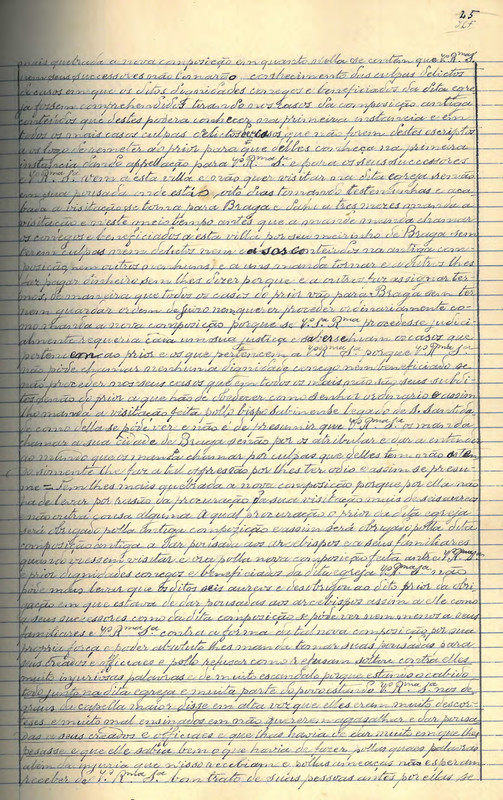 25
mais quebrada a nova composição em quanto nella se contem que V. Rma S.
nem seus successores não tomarão conhecimento das culpas delictos
e casos em que os ditos dignidades conegos e beneficiados da dita egre
ja forem comprehendidos tirando nos casos da composição antiga
contheudos que destes podera conhecer na primeira instancia e em
todos os mais casos culpas e delictos e casos que não forem destes exceptos
os logo de remeter ao prior para que delles conheça na primeira
instancia dando appellação para V. Rma S. e para os seus successores
e V. Rma S. vem a esta villa e não quer visitar na dita egreja senão
em sua pousada onde está oito dias tomando testemunhas e aca
bada a visitação se torna para Braga e dahi a tres mezes manda a
visitação e neste meio tempo antes que a mande manda chamar
os conegos e beneficiados a esta villa por seu meirinho de Braga sem
terem culpas nem delictos nem casos contheudos na antiga com
posição nem outros nenhuns e a uns manda tornar e a outros lhes
faz pagar dinheiro sem lhes dizer porque e a outros faz assignar ter
mos, de maneira que todos os casos do prior vão para Braga sem ter
nem guardar ordem de juizo nem querer proceder ordinariamente co
mo manda a nova composição porque se V. S. Rma procedesse judici
almente requereria cada um sua justiça e saberse hiam os casos que
pertencem ao prior e os que pertencem a V. Rma Sa porque V. Rma Sa
não pode chamar nenhuma dignidade conego nem beneficiado se
não proceder nos seus casos que em todos os mais não são seus subdi
tos senão do prior a que hão de obedecer como senhor ordinario e assim
lho manda a visitação feita pollo bispo sabinense legado de s. santida
de como della se pode ver e não é de presumir que V. Rma Sa os manda
chamar a sua cidade de Braga senão por os atribular e dar a entender
ao mundo que os manda chamar por culpas que delles tem não as tem
e somente lhe faz a tal oppressão por lhes ter odio e assim se presu
me = Tem lhes mais quebrada a nova composição porque por ella não
ha de levar por rasão da procuração da sua visitação mais de seis aureos
e não outra cousa alguma. A qual procuração o prior da dita egreja
será obrigado polla antiga composição e assim será obrigado polla dita
composição antiga a dar pousada aos arcebispos e a seus familiares
quando viessem visitar e ora polla nova composição feita antre V. Rma S.
e prior dignidades conegos e beneficiados da dita egreja V. Rma Sa não
pode mais levar que os ditos seis aureos e desobrigou ao dito prior da obri
gação em que estava de dar pousadas aos arcebispos assim a elle como
a seus successores como da dita composição se pode ver nem menos a seus
familiares e V. Rma Sa contra a forma da tal nova composição por sua
propria força e poder absoluto lhes manda tomar suas pousadas para
seus criados e officiaes e pollo refusar como refusam soltou contra elles
muito injuriosas palavras e de muito escandalo porque estando o cabido
todo junto na dita egreja e muita parte do povo estando V. Rma Sa nos de
graus da capella maior disse em alta voz que elles eram muito descor
teses e muito mal ensinados em não quererem agasalhar e dar pousa
das a seus criados e officiaes e que lhas havia de dar muito em que lhes
pesasse e que elle sabia bem o que havia de fazer pollas quaes palavras
alem da injuria que nisso recebiam e pollas ameaças não esperam
receber de V. Rma Sa bom trato de suas pessoas antes por ellas se